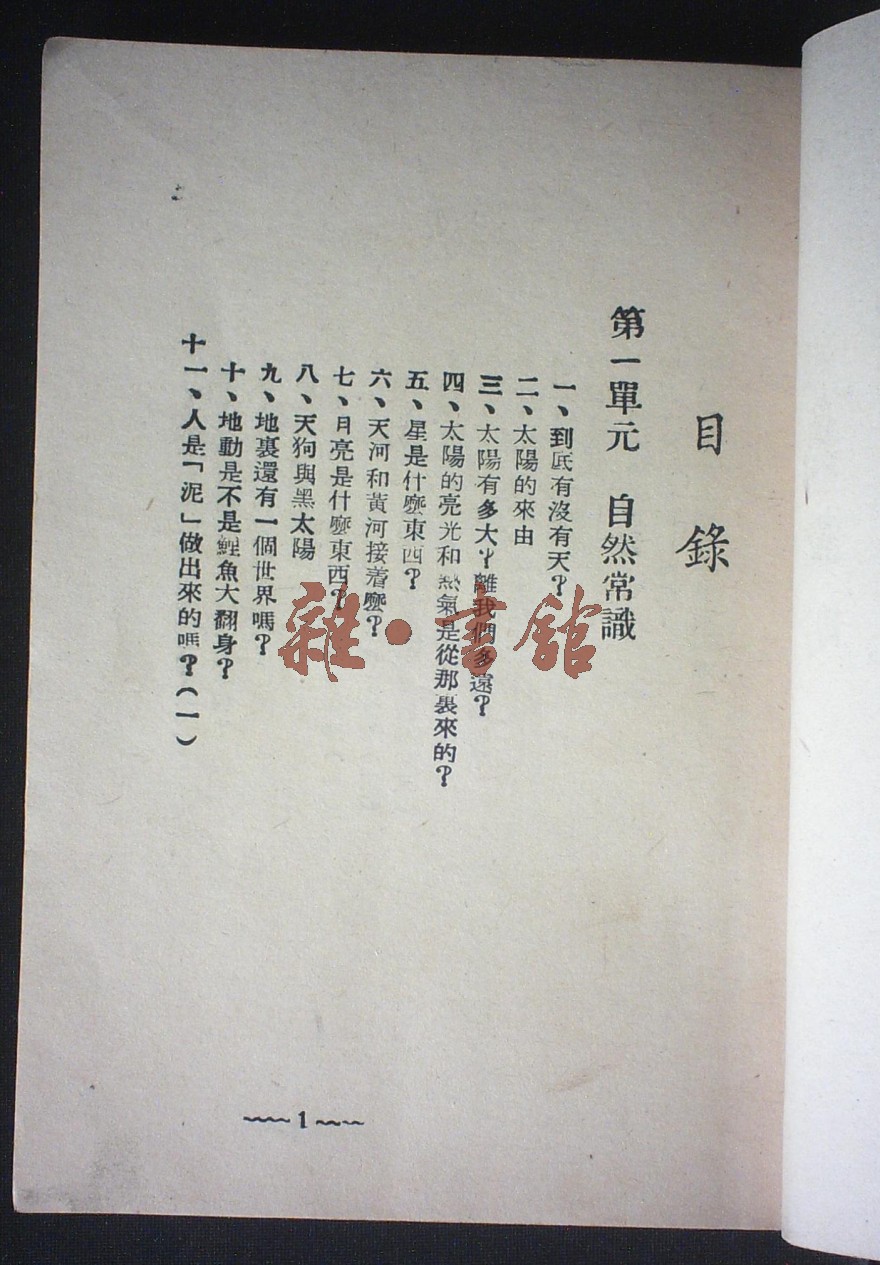 目錄
第一單元　自然常識
一、到底有沒有天?
二、太陽的來由
三、太陽有多大丫離我們多遠?
四、太陽的亮光和熱氣是從那裏來的?
五、星是什麼東西?
六、天河和黃河接着麼?
七、月亮是什麼東西?
八、天狗與黑太陽
九、地裏還有一個世界嗎?
十、地動是不是鯉魚大翻身?
十一、人是「泥」做出來的嗎?(一)
雜·書館
1